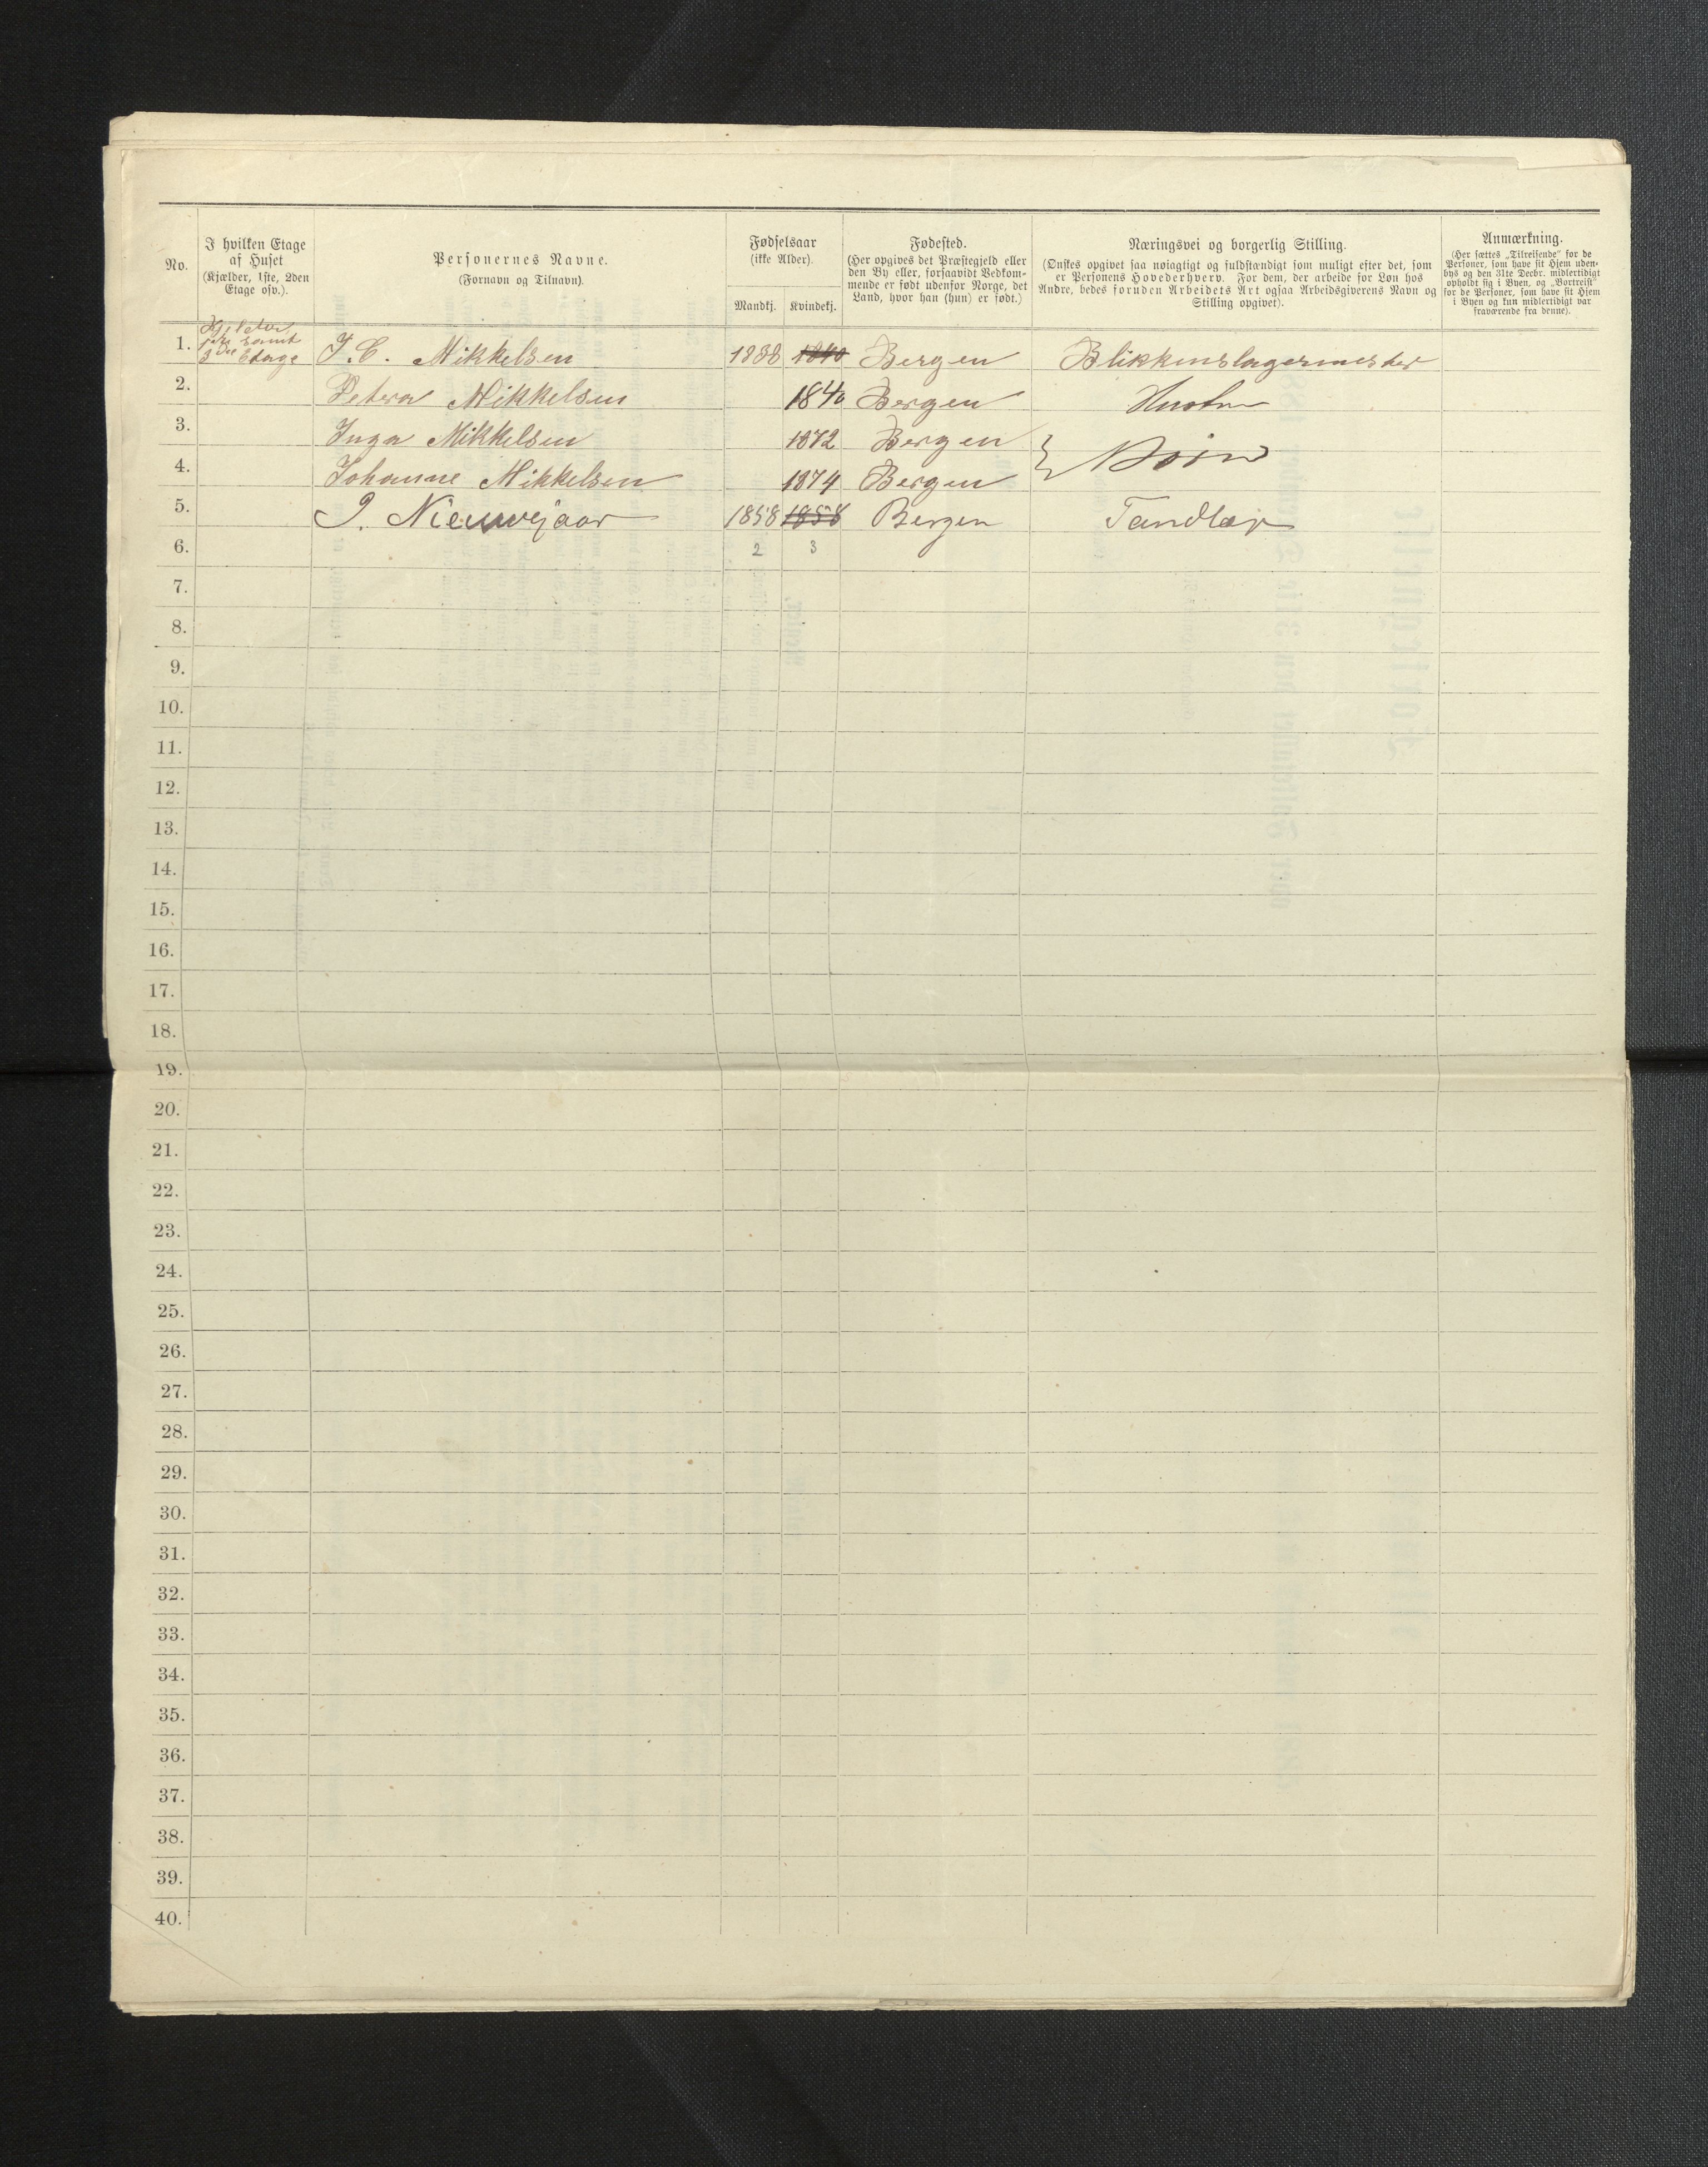 No.
I hvilken Etage
af Huset
(Kjælder, 1ste, 2den
Etage osv.).
Personernes Navne.
(Fornavn og Tilnavn).
Fødselsaar
(ikke Alder).
Mandkj. Kvindekj.
Fødested.
(Her opgives det Præstegjeld eller
den By eller, forsaavidt Vedkom-
mende er født udenfor Norge, det
Land, hvor han (hun) er født.)
Næringsvei og borgerlig Stilling.
(Ønskes opgivet saa nøiagtigt og fuldstændigt som muligt efter det, som
er Personens Hovederhverv. For dem, der arbeide for Løn hos
Andre, bedes foruden Arbeidets Art ogsaa Arbeidsgiverens Navn og
Stilling opgivet).
Anmærkning.
(Her sættes „Tilreisende“ for de
Personer, som have sit Hjem uden-
bys og den 31te Decbr. midlertidigt
opholdt sig i Byen, og „Bortreist“
for de Personer, som have sit Hjem
i Byen og kun midlertidigt var
fraværende fra denne).
samt
Etage
1. J. C. Mikkelsen 1838 1840 Bergen Blikkenslagermester
2. Petera Mikkelsen 1840 Bergen Hustru
3. Inga Mikkelsen 1872 Bergen } Børn
4. Johanne Mikkelsen 1874 Bergen
5. J. Nieuwejaar 1858 1858 Bergen Tandlæge
6. 2 3
7.
8.
9.
10.
11.
12.
13.
14.
15.
16.
17.
18.
19.
20.
21.
22.
23.
24.
25.
26.
27.
28.
29.
30.
31.
32.
33.
34.
35.
36.
37.
38.
39.
40.